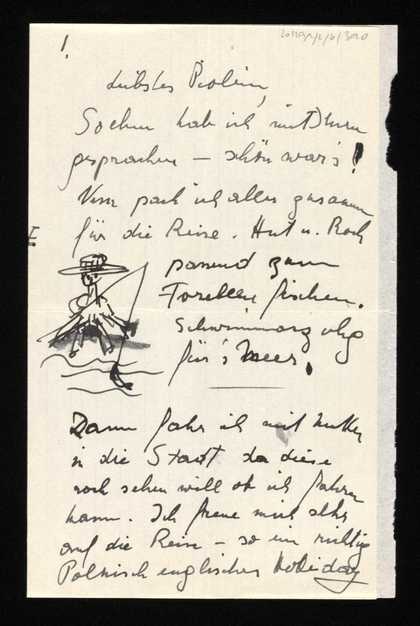 1.
Liebstes
Soeben hab ich mit Ihnen
gesprochen — schön war's!
Nun pack ich alles zusammen
für die Reise. Hut u. Rock
passend zum
Forellen fischen.
Schwimmanzug
für's Meer.
Dann fahr ich mit Mutter
in die Stadt da diese
noch sehen will ob ich fahren
kann. Ich freue mich sehr
auf die Reise – so ein richtig
Polnisch englischer Holiday